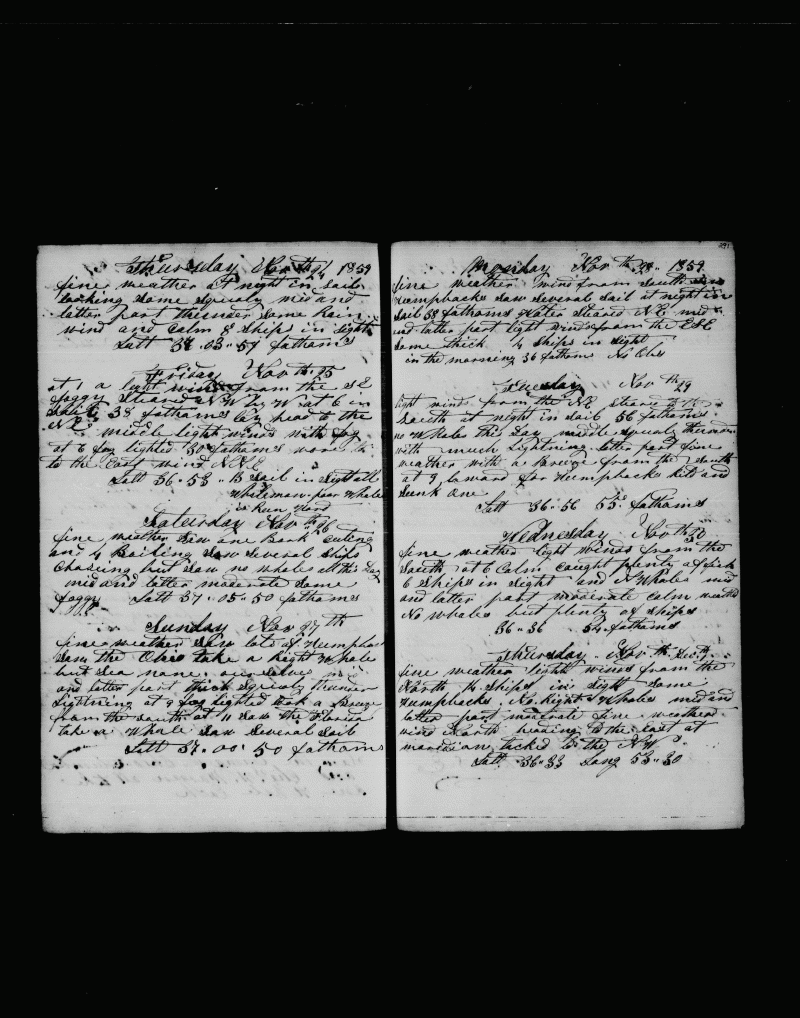 Thursday Nov th 24 1859
fine weather at night in sail
looking some squaly mid and
latter part thunder some rain
wind and calm 8 ships in sight
Latt 37.03.. 57 fathoms
Friday Nov th 25
at 1 a light wind from the SE
foggy steared NW by W at 6 in
sail 38 fathoms by head to the
NE middle light winds with fog
at 6 fog lighted 50 fathoms wore
to the East wind NNE
Latt 36-58 - 15 sail in sight all
Whaleman poor Whale
Saturday Nov th 26
fine weather saw one Bark cuting
and 4 Boiling saw several ships
chasing but saw no whale all this day
mid and latter moderate some
foggy Latt 37-05-50 fathoms
Sunday Nov 27 th
fine weather saw lots of Humpbac
saw the Ohio take a Right Whale
but sea none our selves mid
and latter part thick squaly thunder
Lightning at 9 fog lighted took a Breeze
from the south at 11 saw the Florida
take a Whale saw several sail
Latt 37.00' 50 fathoms
291
Monday Nov th 28.. 1859
fine weather wind from south
Humpbacks saw several sail at night in
sail 58 fathoms Water steared NE mid
and latter part light winds from the ESE
some thick. 4 ships in sight
in the morning 36 fathom No Obs
Tuesday Nov th 29
light winds from the NE steared
South at night in sail 56 fathoms
no Whales this Day middle squaly thunder
with much Lightning latter part fine
weather with a Breeze from the South
at 9 loward for Humpbacks kild and
sunk one
Latt 36-56 53 fathoms
Wednesday Nov th 30
fine weather light winds from the
South at 6 Calm caught plenty of fish
6 ships in sight and No Whales mid
and latter part moderate calm weather
No whales but plenty of ships
36-36 54 fathoms
Thursday
fine weather light winds from the
North 14 ships in sight some
Humpbacks. No Right Whales mid and
latter part moderate fine weather
wind North heading to the East at
meridian tacked to the NW
Latt 36-33 Long 53-30